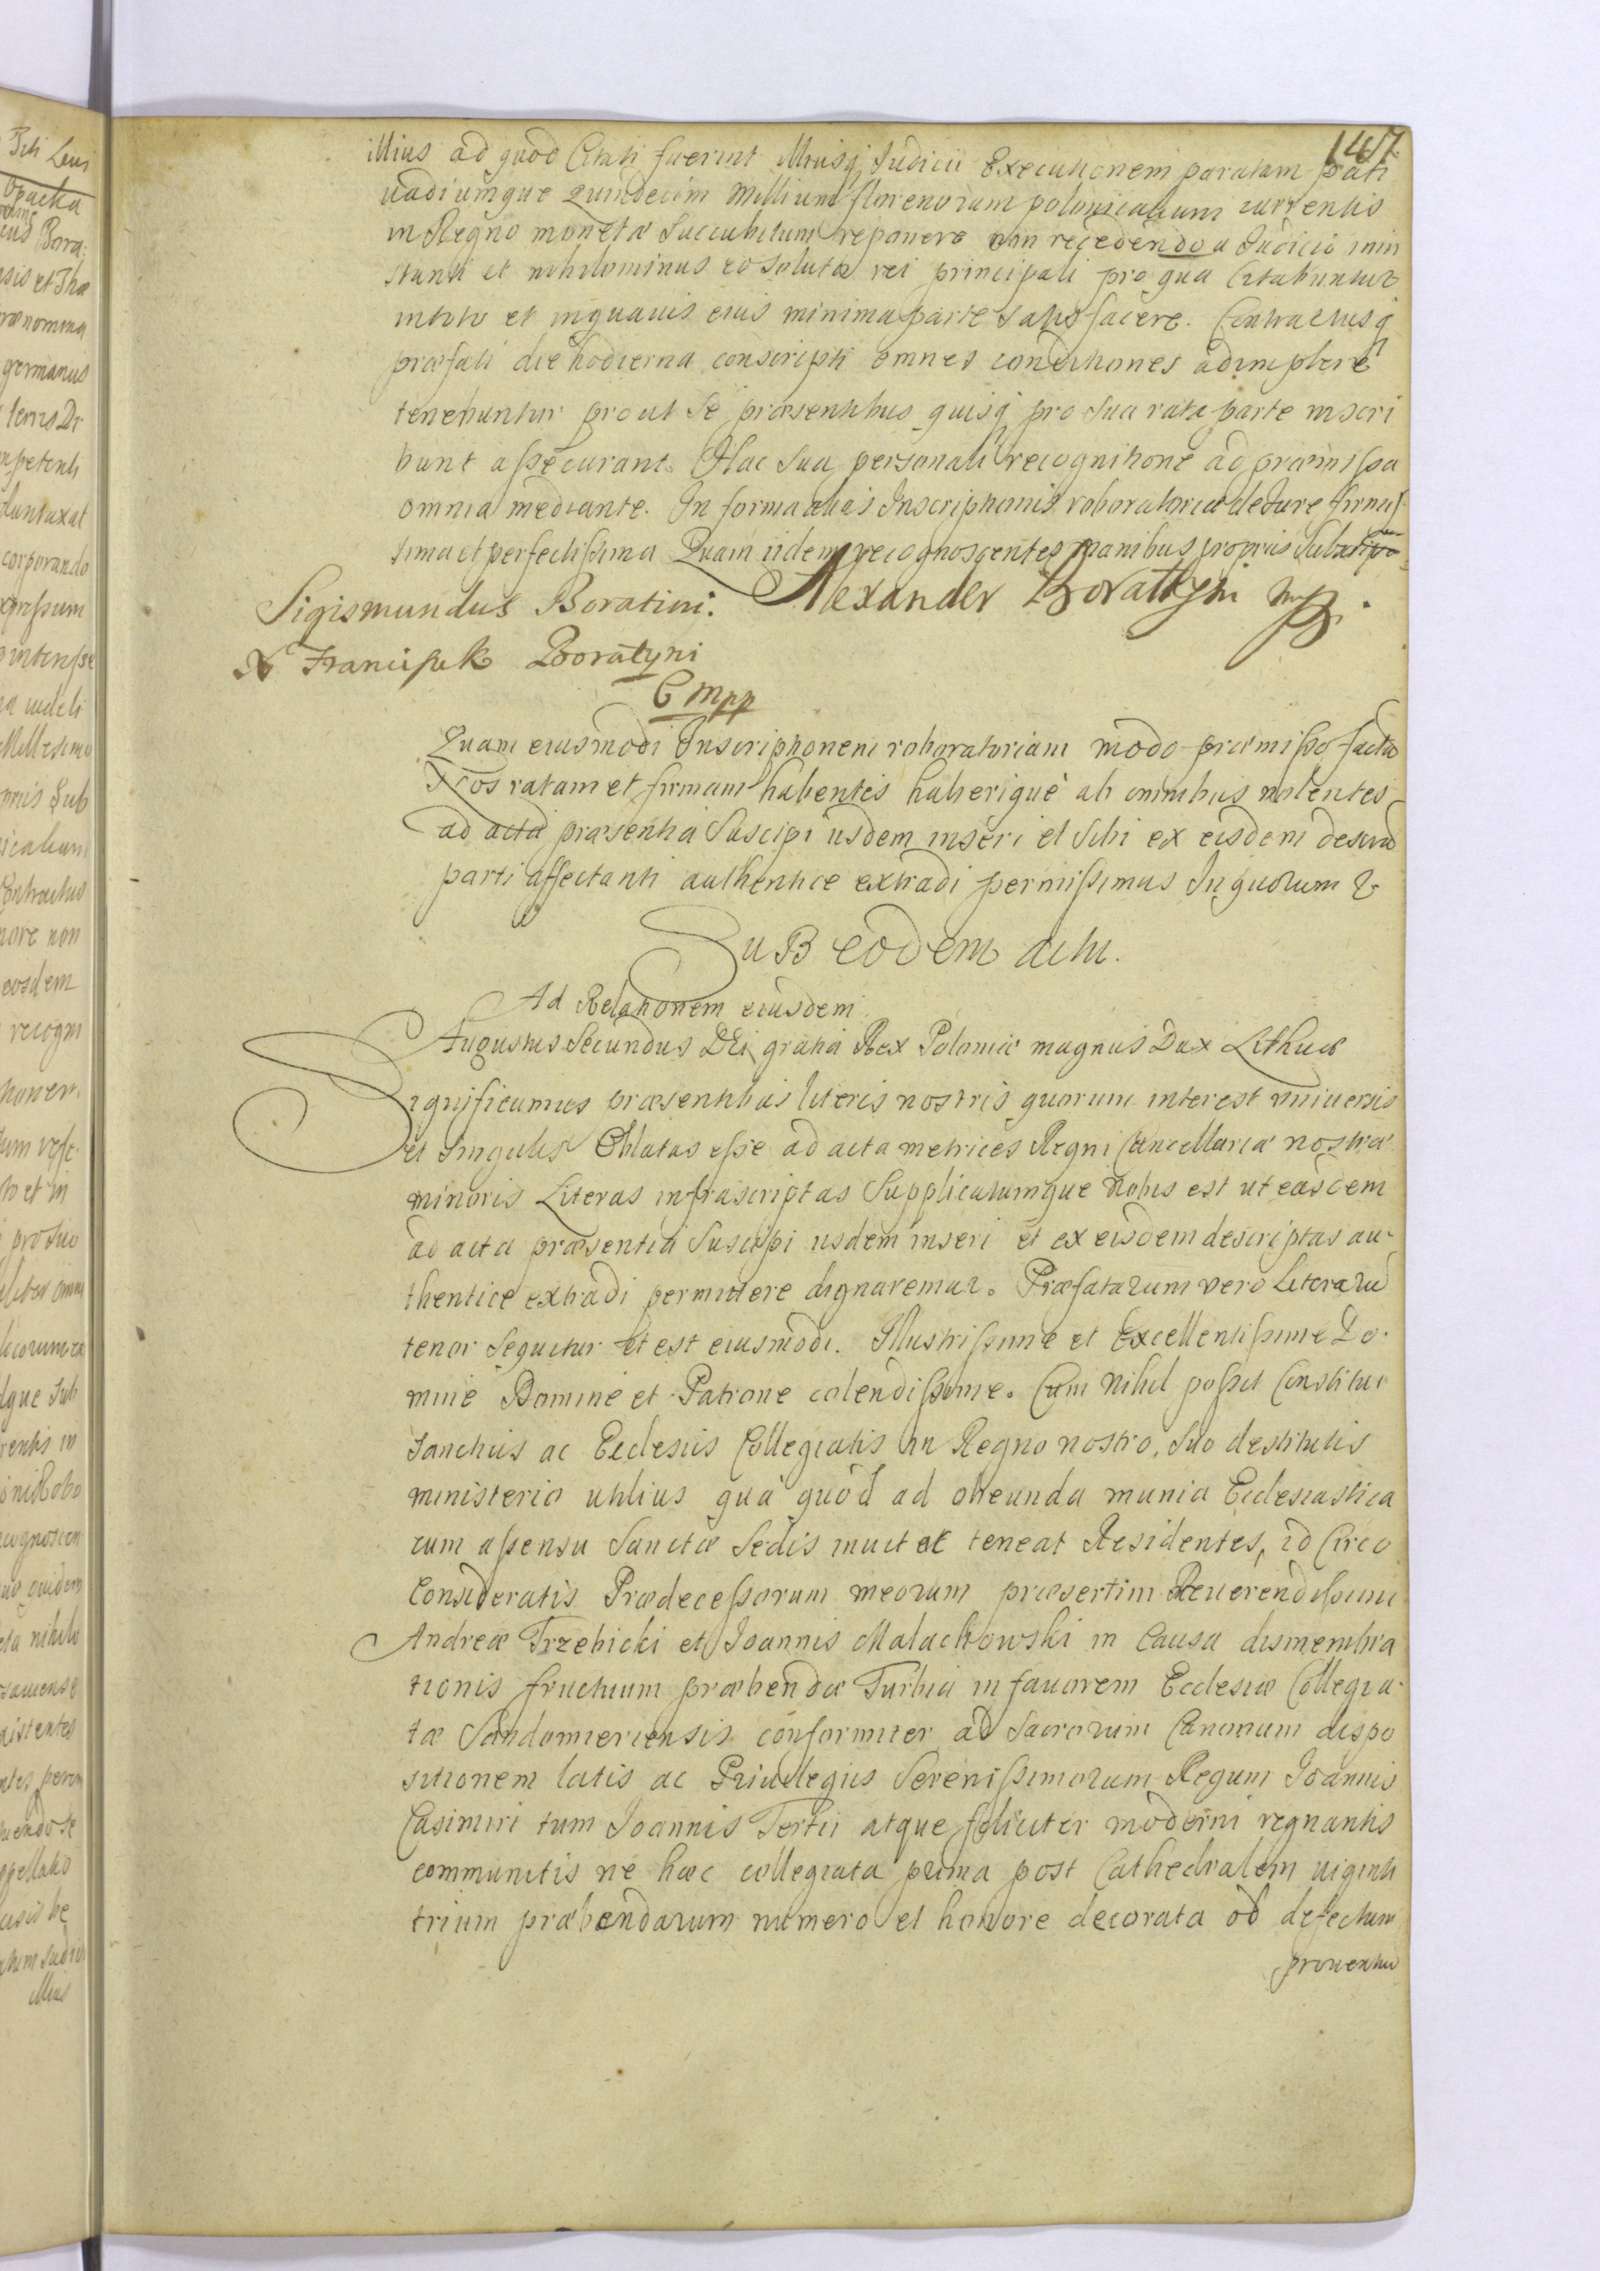 147
illius ad quod Citati fuerint illiusq Judicii Executionem paratam pati
uadiumque quindecim Millium florenorum polonicalium currentis
in Regno monetæ Succubitum reponere non recedendo a Judicio inin
stanti et nihilominus eo soluto rei principali pro qua Citabuntur
intoto et inquauis eius minima parte satisfacere. Contractusq
præfati die hodierna conscripti omnes conditiones adimplere
tenebuntur prout se præsentibus quisq pro sua rata parte inscri
bunt aßecurant. Hac sua personali recognitione ad præmißa
omnia mediante. In forma alias Inscriptionis roboratoriæ de Jure firmis
sima et perfectißima Quam iidem recognoscentes manibus propriis
Sigismundus Boratini. Alexander Borattyni mpp.
X Franciszek Boratyni
C mpp
Quam eiusmodi Inscriptionem roboratoriam modo præmißo factā
Nos ratam et firmam habentes haberique ab omnibus uolentes
ad acta præsentia Suscipi iisdem inseri et Sibi ex eisdem
parti affectanti authentice extradi permißimus In quorum
Sub eodem actu.
Ad Relationem eiusdem
Augustus Secundus DEi gratia Rex Poloniæ magnus Dux Lithuæ
Significamus præsentibus literis nostris quorum interest vniuersis
et singulis Oblatas eße ad acta metrices Regni Cancellariæ nostræ
minoris Literas infrascriptas Supplicatumque Nobis est ut easdem
ad acta præsentia suscipi iisdem inseri et ex eisdem descriptas au-
thentice extradi permittere dignaremur. Præfatarum vero Literarū
tenor sequitur et est eiusmodi. Illustrißime et Excellentißime Do-
mine Domine et Patrone colendißime. Cum Nihil poßit Constitui
sanctius ac Ecclesiis Collegiatis in Regno nostro, suo destitutis
ministerio utilius quā quod ad obeunda munia Ecclesiastica
cum aßensu Sanctæ Sedis inuitet teneat Residentes, id Circo
Consideratis Prædeceßorum meorum præsertim Reuerendißimi
Andreæ Trzebicki et Joannis Malachowski in Causa dismembra
tionis fructuum præbendæ Turbia in fauorem Ecclesiæ Collegia-
tæ Sandomiriensis conformiter ad Sacrorum Canonum dispo
sitionem latis ac Priuilegiis Serenißimorum Regum Joannis
Casimiri tum Joannis Tertii atque feliciter moderni regnantis
communitis ne hæc collegiata prima post Cathedralem uiginti
trium præbendarum numero et honore decorata ob defectum
prouentuu